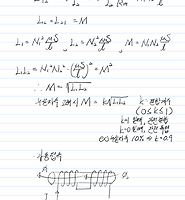 L₁₂ = L₂₁ = M
L₁ = N₁² μS/l , L₂ = N₂² μS/l , M = N₁N₂ μS/l
L₁L₂ = N₁²N₂² · (μS/l)² = M²
∴ M = √L₁L₂
누설자속 고려시 M = k√L₁L₂ k = 결합계수
(0 ≤ k ≤ 1)
k=1 완전결합
k=0
ex) 누설자속 10% ⇒ k=0.9
I